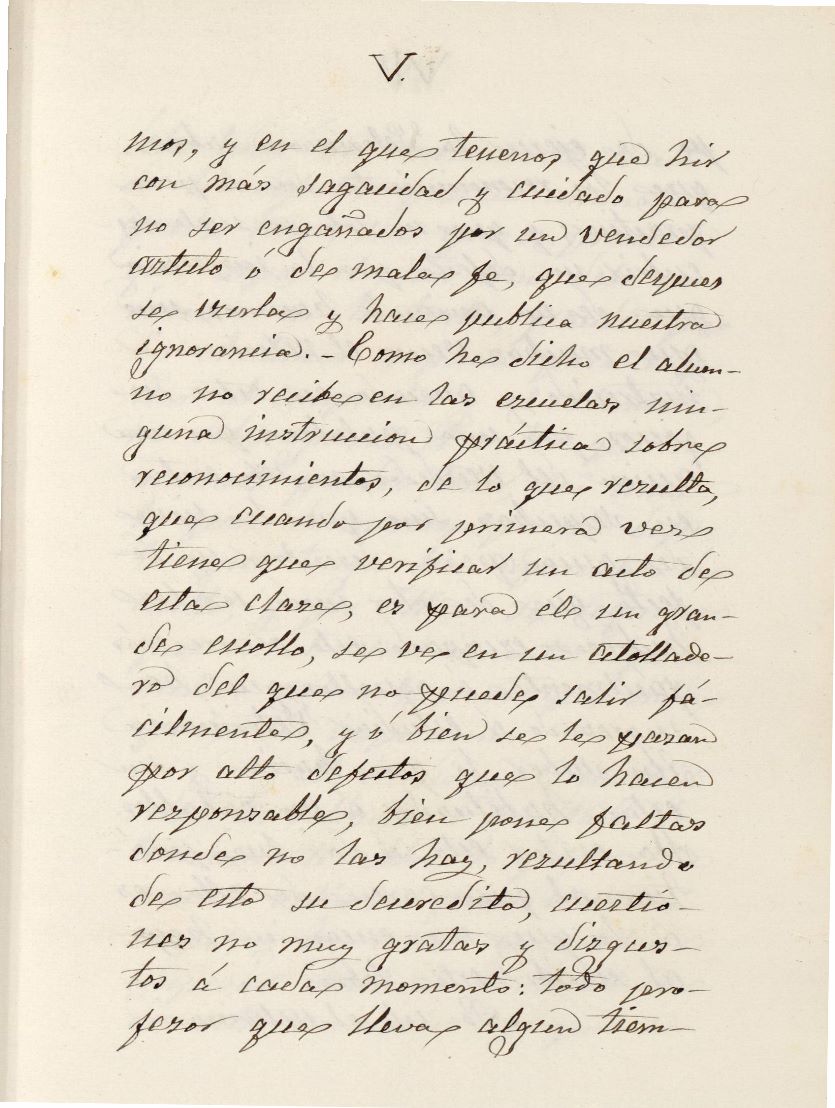 V.
mos, y en el que tenenos que hir
con más sagacidad y cuidado para
no ser engañados por un vendedor
astuto ó de mala fe, que despues
se burla y hace publica nuestra
ignorancia. - Como he dicho el alum-
no no recibe en las escuelas nin-
guna instruccion práctica sobre
reconocimientos, de lo que rezulta,
que cuando por primera vez
tiene que verificar un acto de
esta clase, es para él un gran-
de escollo, se ve en un atollade-
ro del que no puede salir fá-
cilmente, y ó bien se le pazan
por alto defectos que lo hacen
responzable, bien pone faltas
donde no las hay, rezultando
de esto su descredito, cuestio-
nes no muy gratas y disgus-
tos á cada momento: todo pro-
fesor que lleva algun tiem-